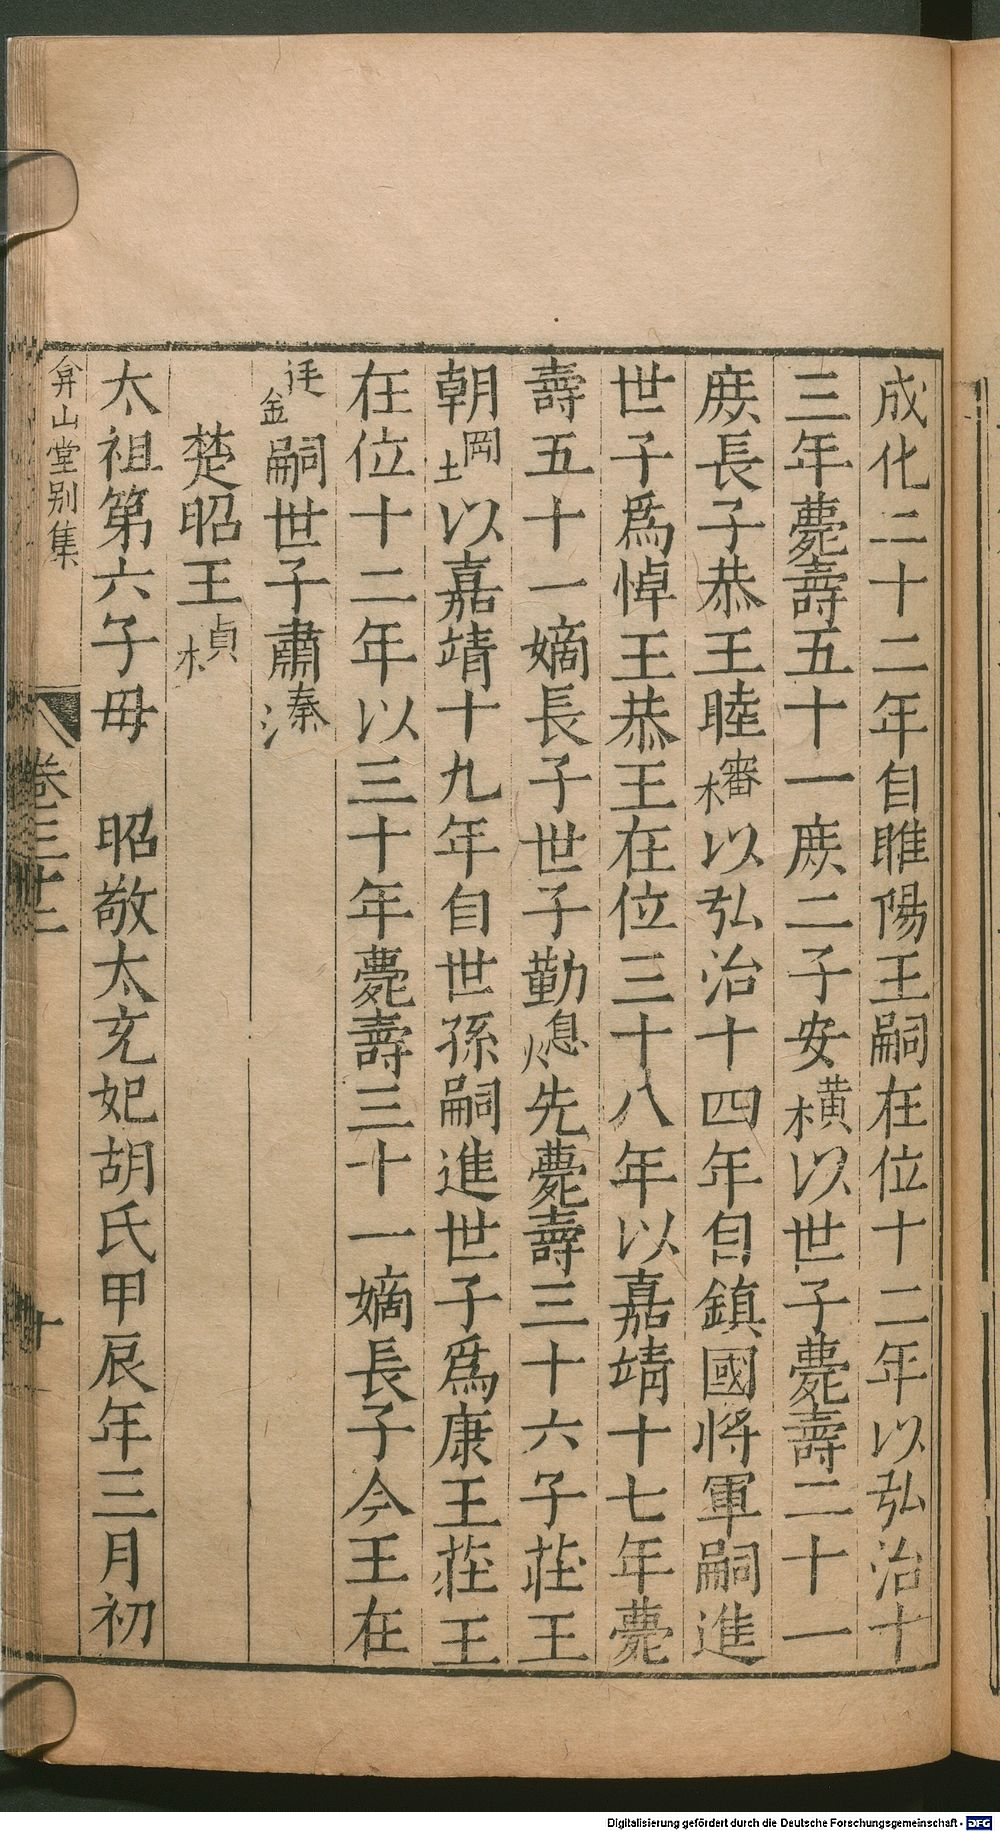 成化二十二年自睢陽王嗣在位十二年以弘治十
三年薨壽五十一庻二子安橫以世子薨壽二十一
庻長子恭王睦㰂以弘治十四年自鎮國將軍嗣進
世子爲悼王恭王在位三十八年以嘉靖十七年薨
壽五十一嫡長子世子勤熄先薨壽三十六子荘王
朝堈以嘉靖十九年自世孫嗣進世子爲康王荘王
在位十二年以三十年薨壽三十一嫡長子今王在
鋌嗣世子肅溱
楚昭王楨
太祖第六子母　昭敬太充妃胡氏甲辰年三月初
弇山堂别集
卷三十二
十
Digitalisierung gefördert durch die Deutsche Forschungsgemeinschaft - DFG